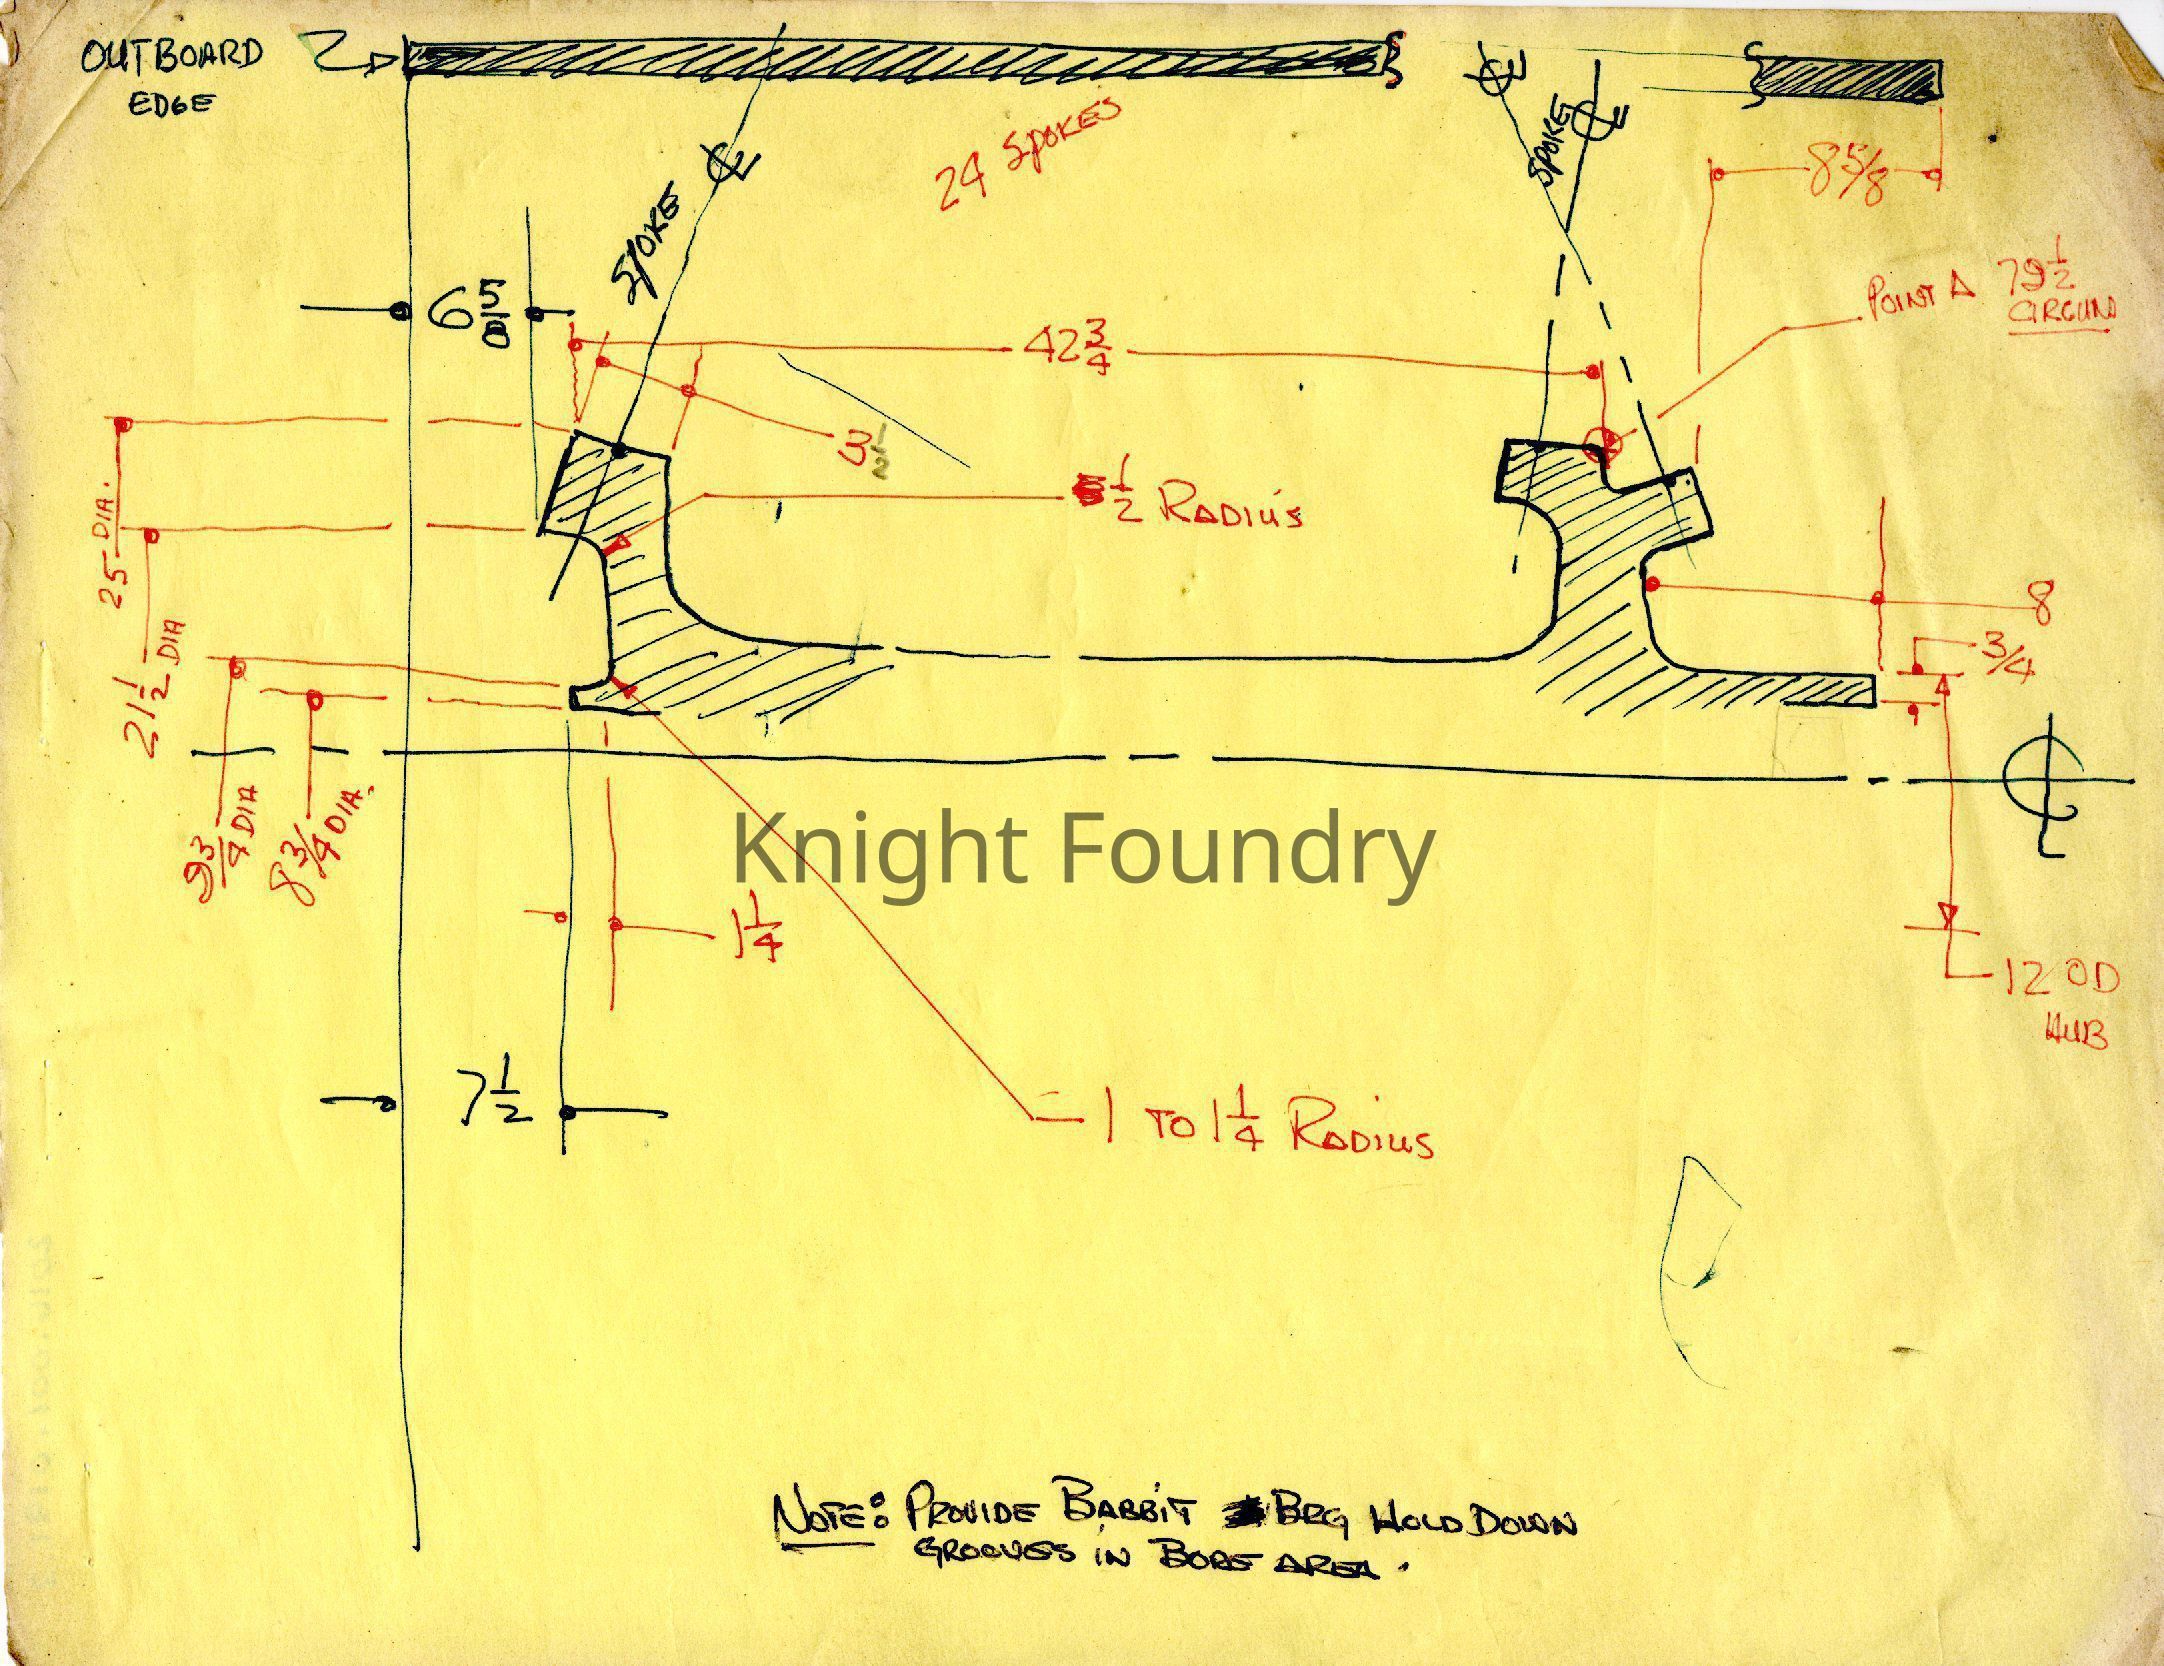 OUTBOARD
EDGE
SPOKE
24 SPOKES
SPOKE
8 5/8
6 5/8
42 3/4
POINT A 79 1/2
AROUND
3 1/2
1/2 RADIUS
25 DIA.
21 1/2 DIA
9 3/4 DIA
8 3/4 DIA.
8
3/4
Knight Foundry
1 1/4
12 OD
HUB
7 1/2
1 TO 1 1/4 RADIUS
NOTE: PROVIDE BABBIT BRG HOLD DOWN
GROOVES IN BORE AREA.